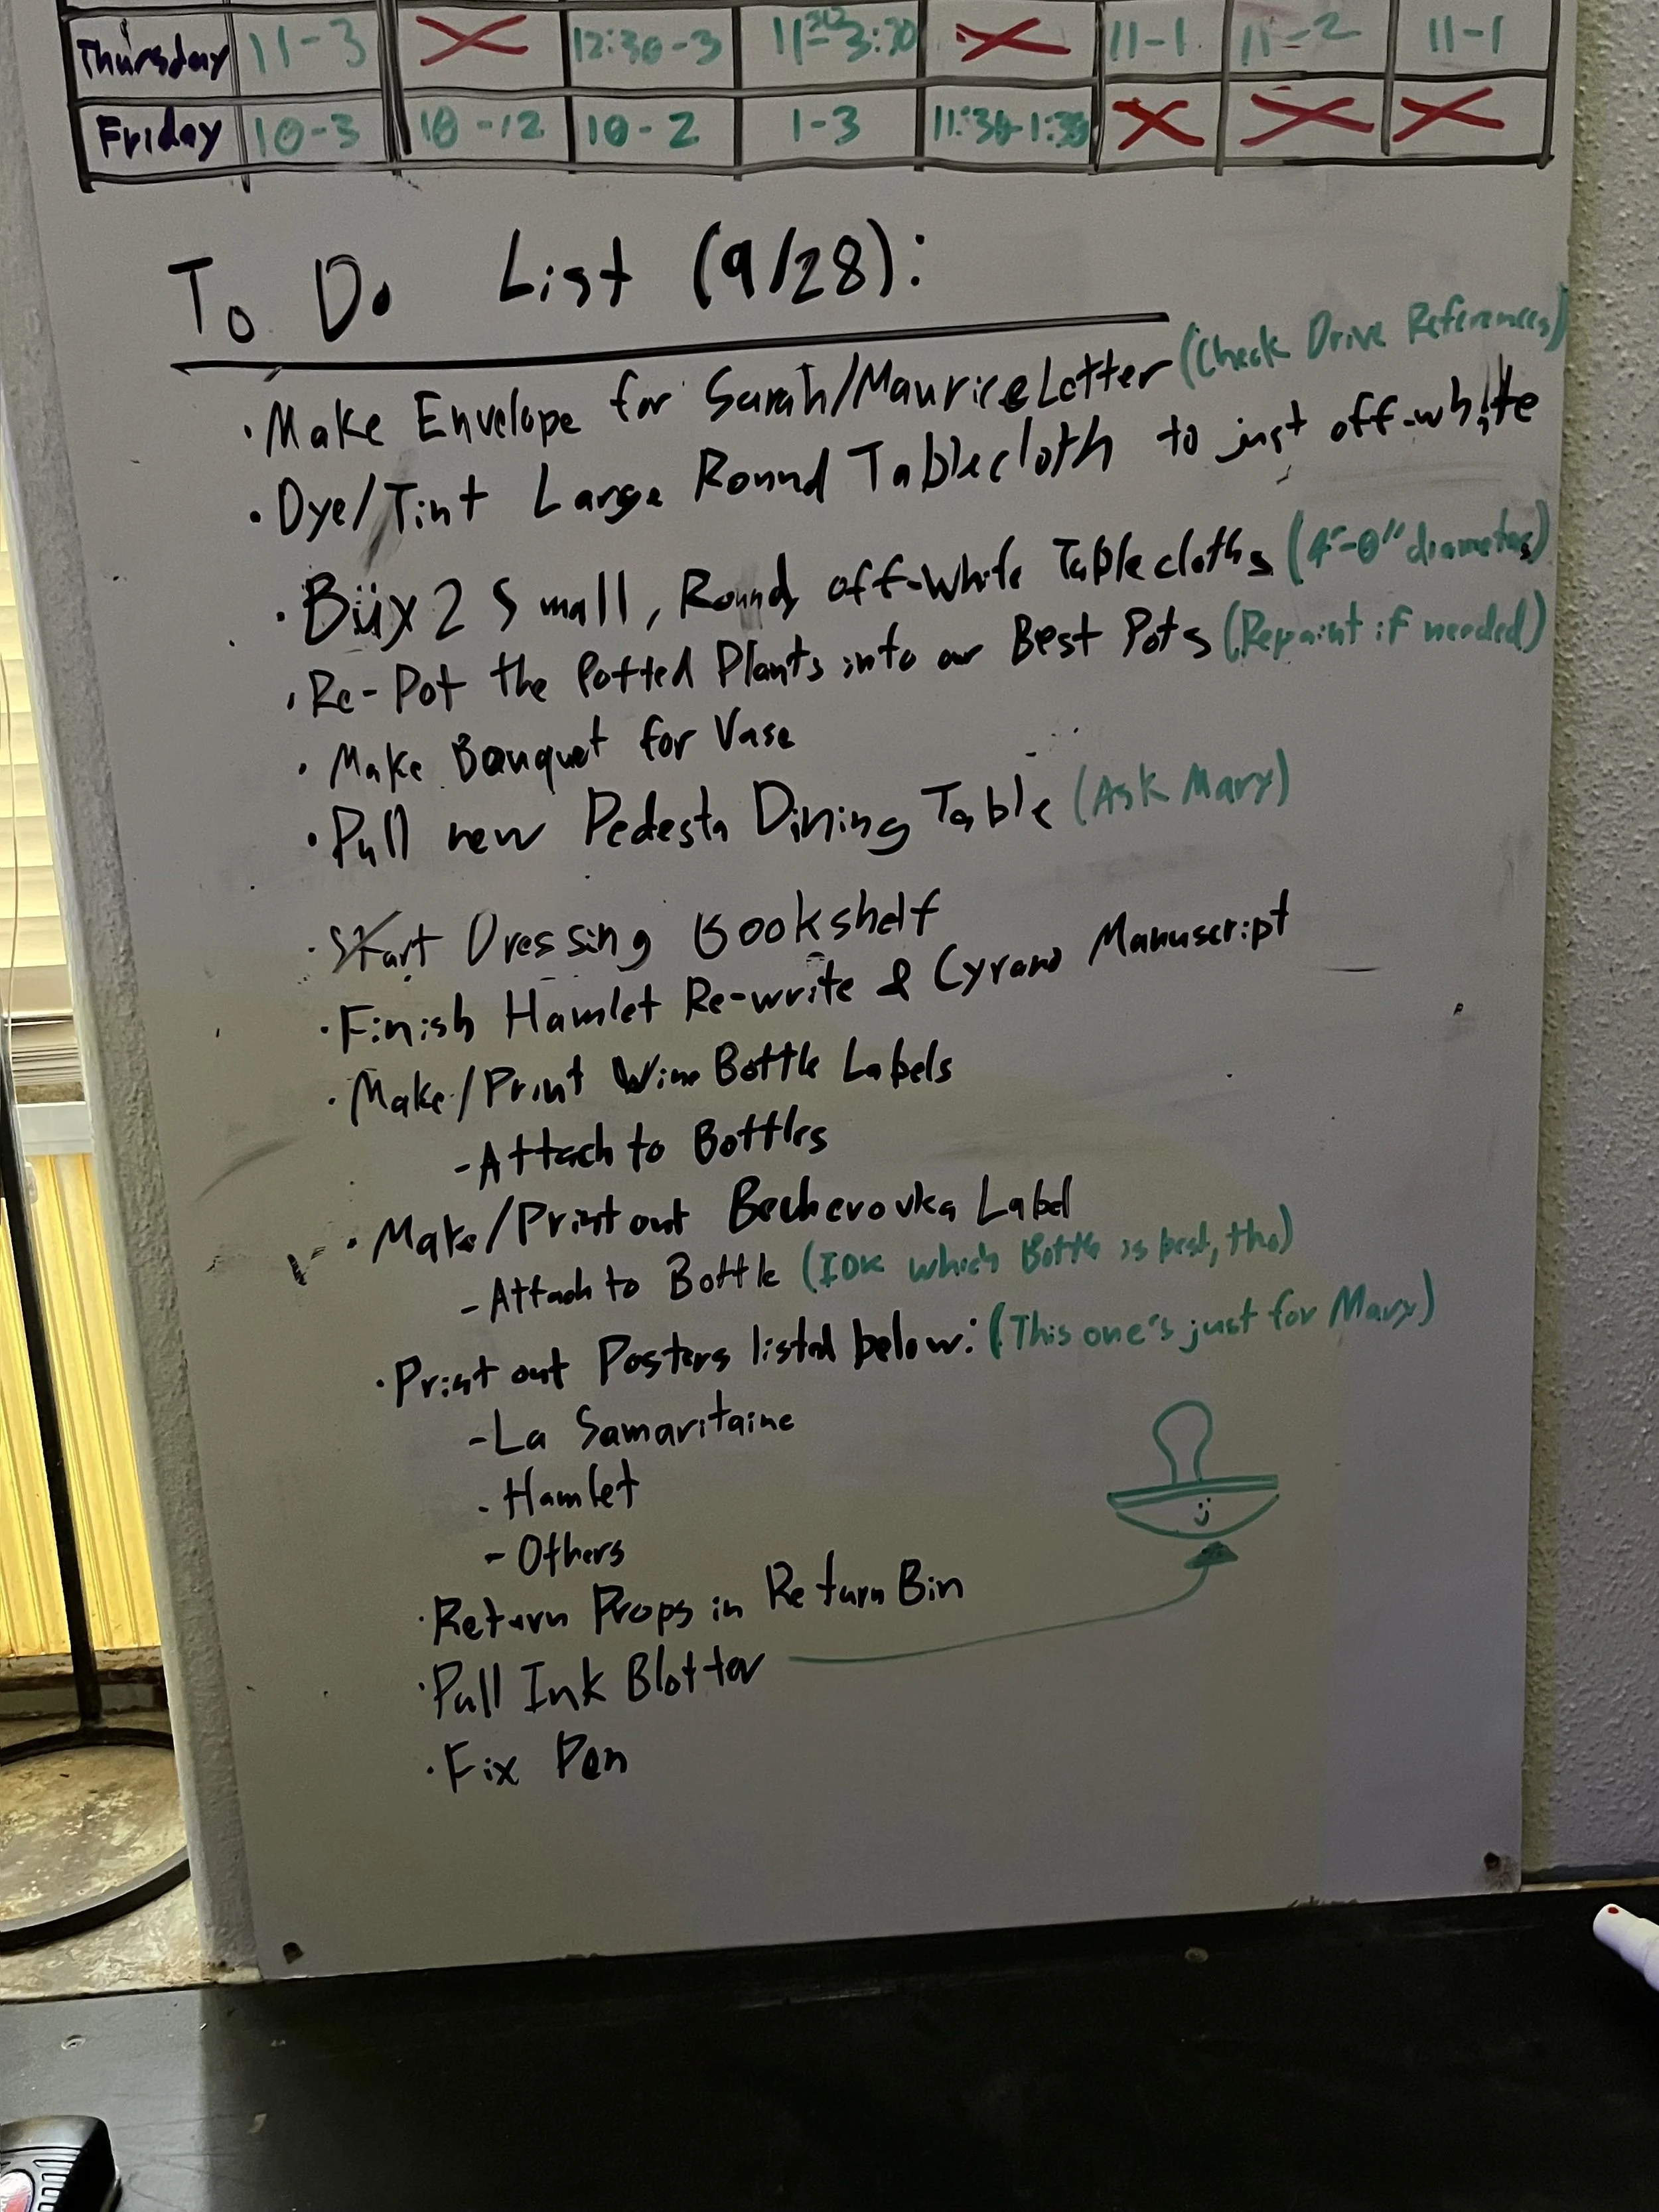 Thursday 11-3 12:30-3 11:30-3:30 11-1 11-2 11-1
Friday 10-3 10-12 10-2 1-3 11:30-1:30
To Do List (9/28):
·Make Envelope for Sarah/Maurice Letter (Check Drive References)
·Dye/Tint Large Round Tablecloth to just off-white
·Büy 2 Small, Round, off-white Tablecloths (4'-0" diameter)
·Re-Pot the Potted Plants into our Best Pots (Repaint if needed)
·Make Bouquet for Vase
·Pull new Pedestal Dining Table (Ask Mary)
·Start Dressing Bookshelf
·Finish Hamlet Re-write & Cyrano Manuscript
·Make/Print Wine Bottle Labels
-Attach to Bottles
·Make/Print out Becherovka Label
-Attach to Bottle (IDK which Bottle is best, tho)
·Print out Posters listed below: (This one's just for Mary)
-La Samaritaine
-Hamlet
-Others
·Return Props in Return Bin
·Pull Ink Blotter
·Fix Pen